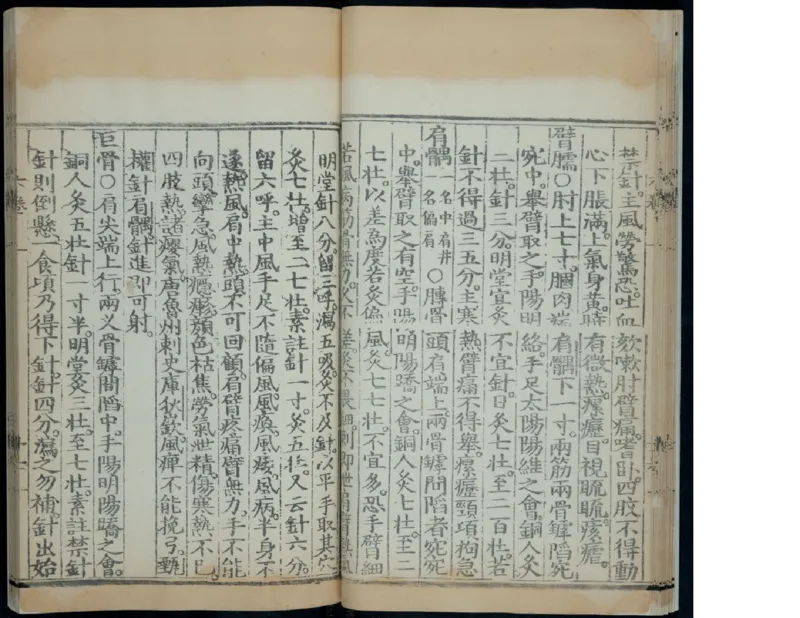 禁針。主風勞驚恐。吐血欬嗽。肘臂痛。嗜臥。四肢不得動
心下脹滿。上氣身黃。時有微熱。瘰癧。目視䀮䀮。痎瘧。
臂臑〇肘上七寸。膕肉端肩髃下一寸。兩筋兩骨罅陷宛
宛中。舉臂取之。手陽明絡。手足太陽陽維之會。銅人灸
二壯。針三分。明堂宜灸不宜針。日灸七壯至二百壯。若
針不得過三五分。主寒熱臂痛不得舉。瘰癧頸項拘急
肩髃 一名中肩井一名偏肩〇膊骨頭肩端上兩骨罅間陷者宛宛
中。舉臂取之有空。手陽明陽蹻之會。銅人灸七壯。至二
七壯。以差為度。若灸偏風。灸七七壯。不宜多。恐手臂細
若風病筋骨無力久不差。灸不畏細。刺即泄肩臂熱風
明堂針八分。留三呼。瀉五吸。灸不及針。以平手取其穴
灸七壯。增至二七壯。素註針一寸。灸五壯。又云針六分。
留六呼。主中風手足不隨。偏風。風瘓。風痿。風病。半身不
遂。熱風。肩中熱。頭不可回顧。肩臂疼痛臂無力。手不能
向頭。攣急。風熱癮疹。顏色枯焦。勞氣泄精。傷寒熱不已
四肢熱。諸癭氣。唐魯州刺史庫狄嶔風痺。不能挽弓。甄
權針肩髃。針進即可射。
巨骨〇肩尖端上行。兩叉骨罅間陷中。手陽明陽蹻之會。
銅人灸五壯。針一寸半。明堂灸三壯至七壯。素註。禁針
針則倒懸。一食頃。乃得下針。針四分。瀉之勿補。針出始
六卷